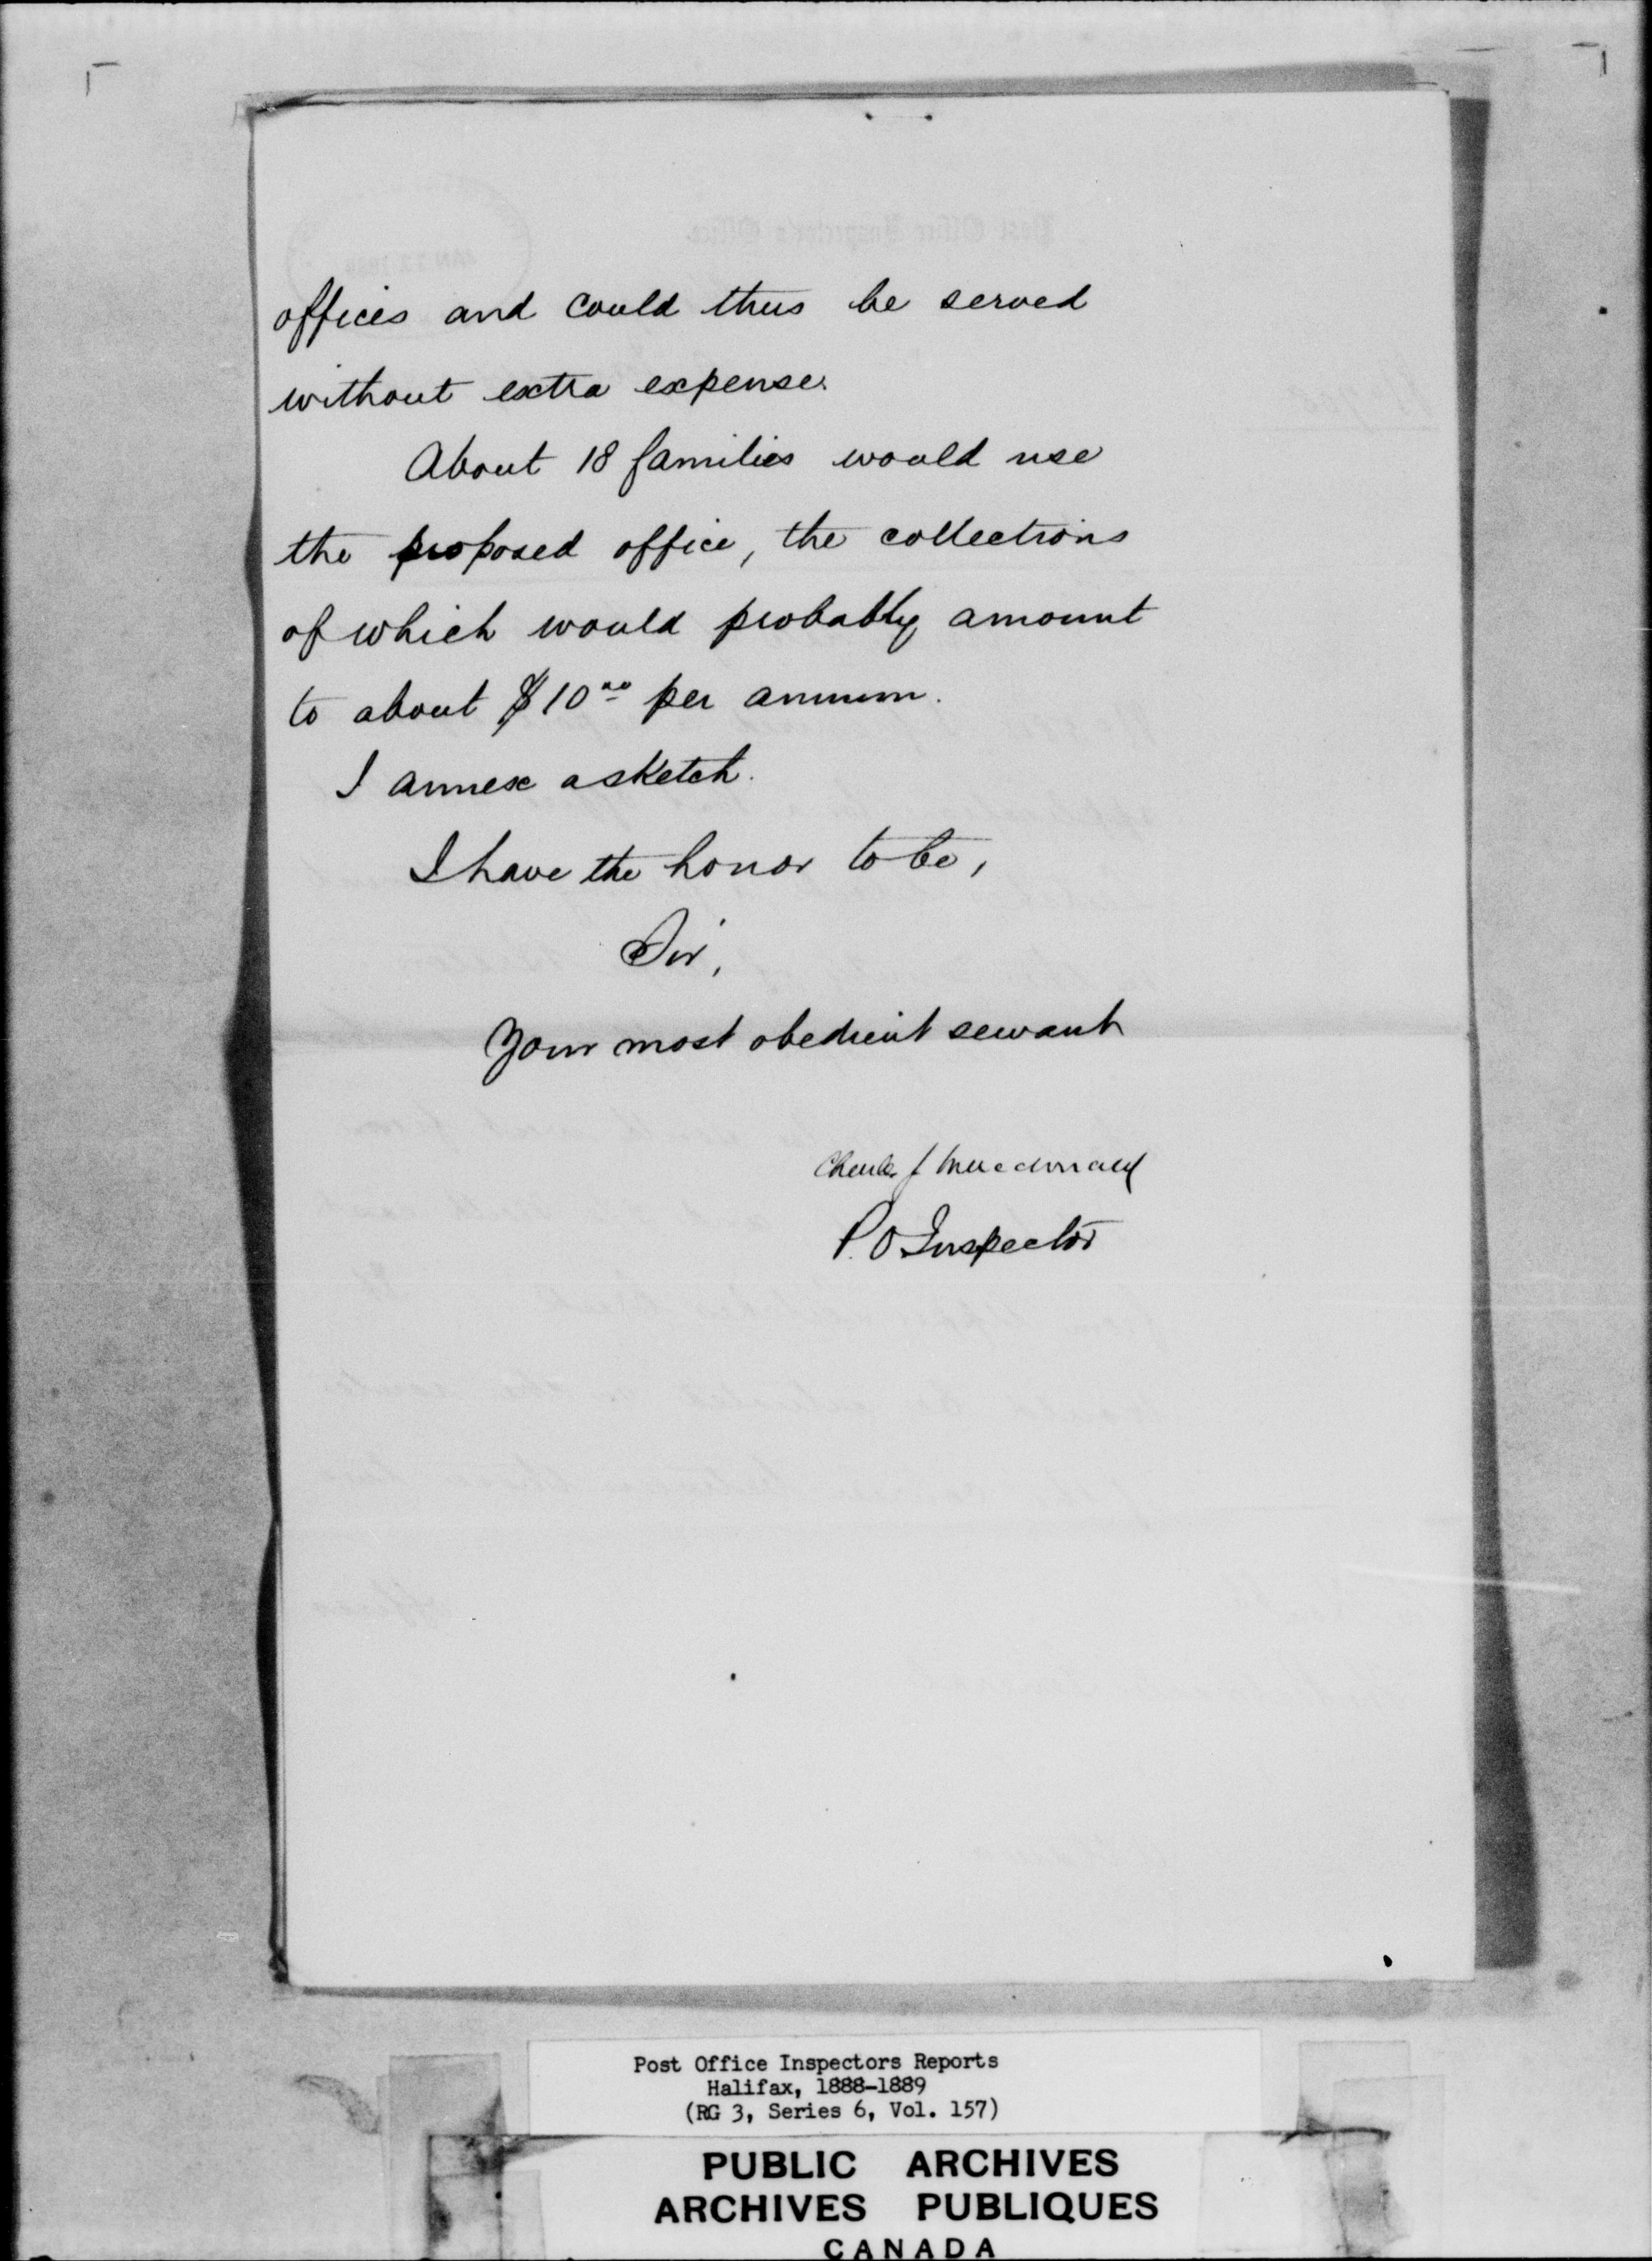 offices and could thus be served
without extra expense.
About 18 families would use
the proposed office, the collections
of which would probably amount
to about $10 00 per annum.
I annex a sketch.
I have the honor to be,
Sir,
Your most obedient servant
Charles J Macdonald
P.O Inspector
Post Office Inspectors Reports
Halifax, 1888-1889
(RG 3, Series 6, Vol. 157)
PUBLIC ARCHIVES
ARCHIVES PUBLIQUES
CANADA